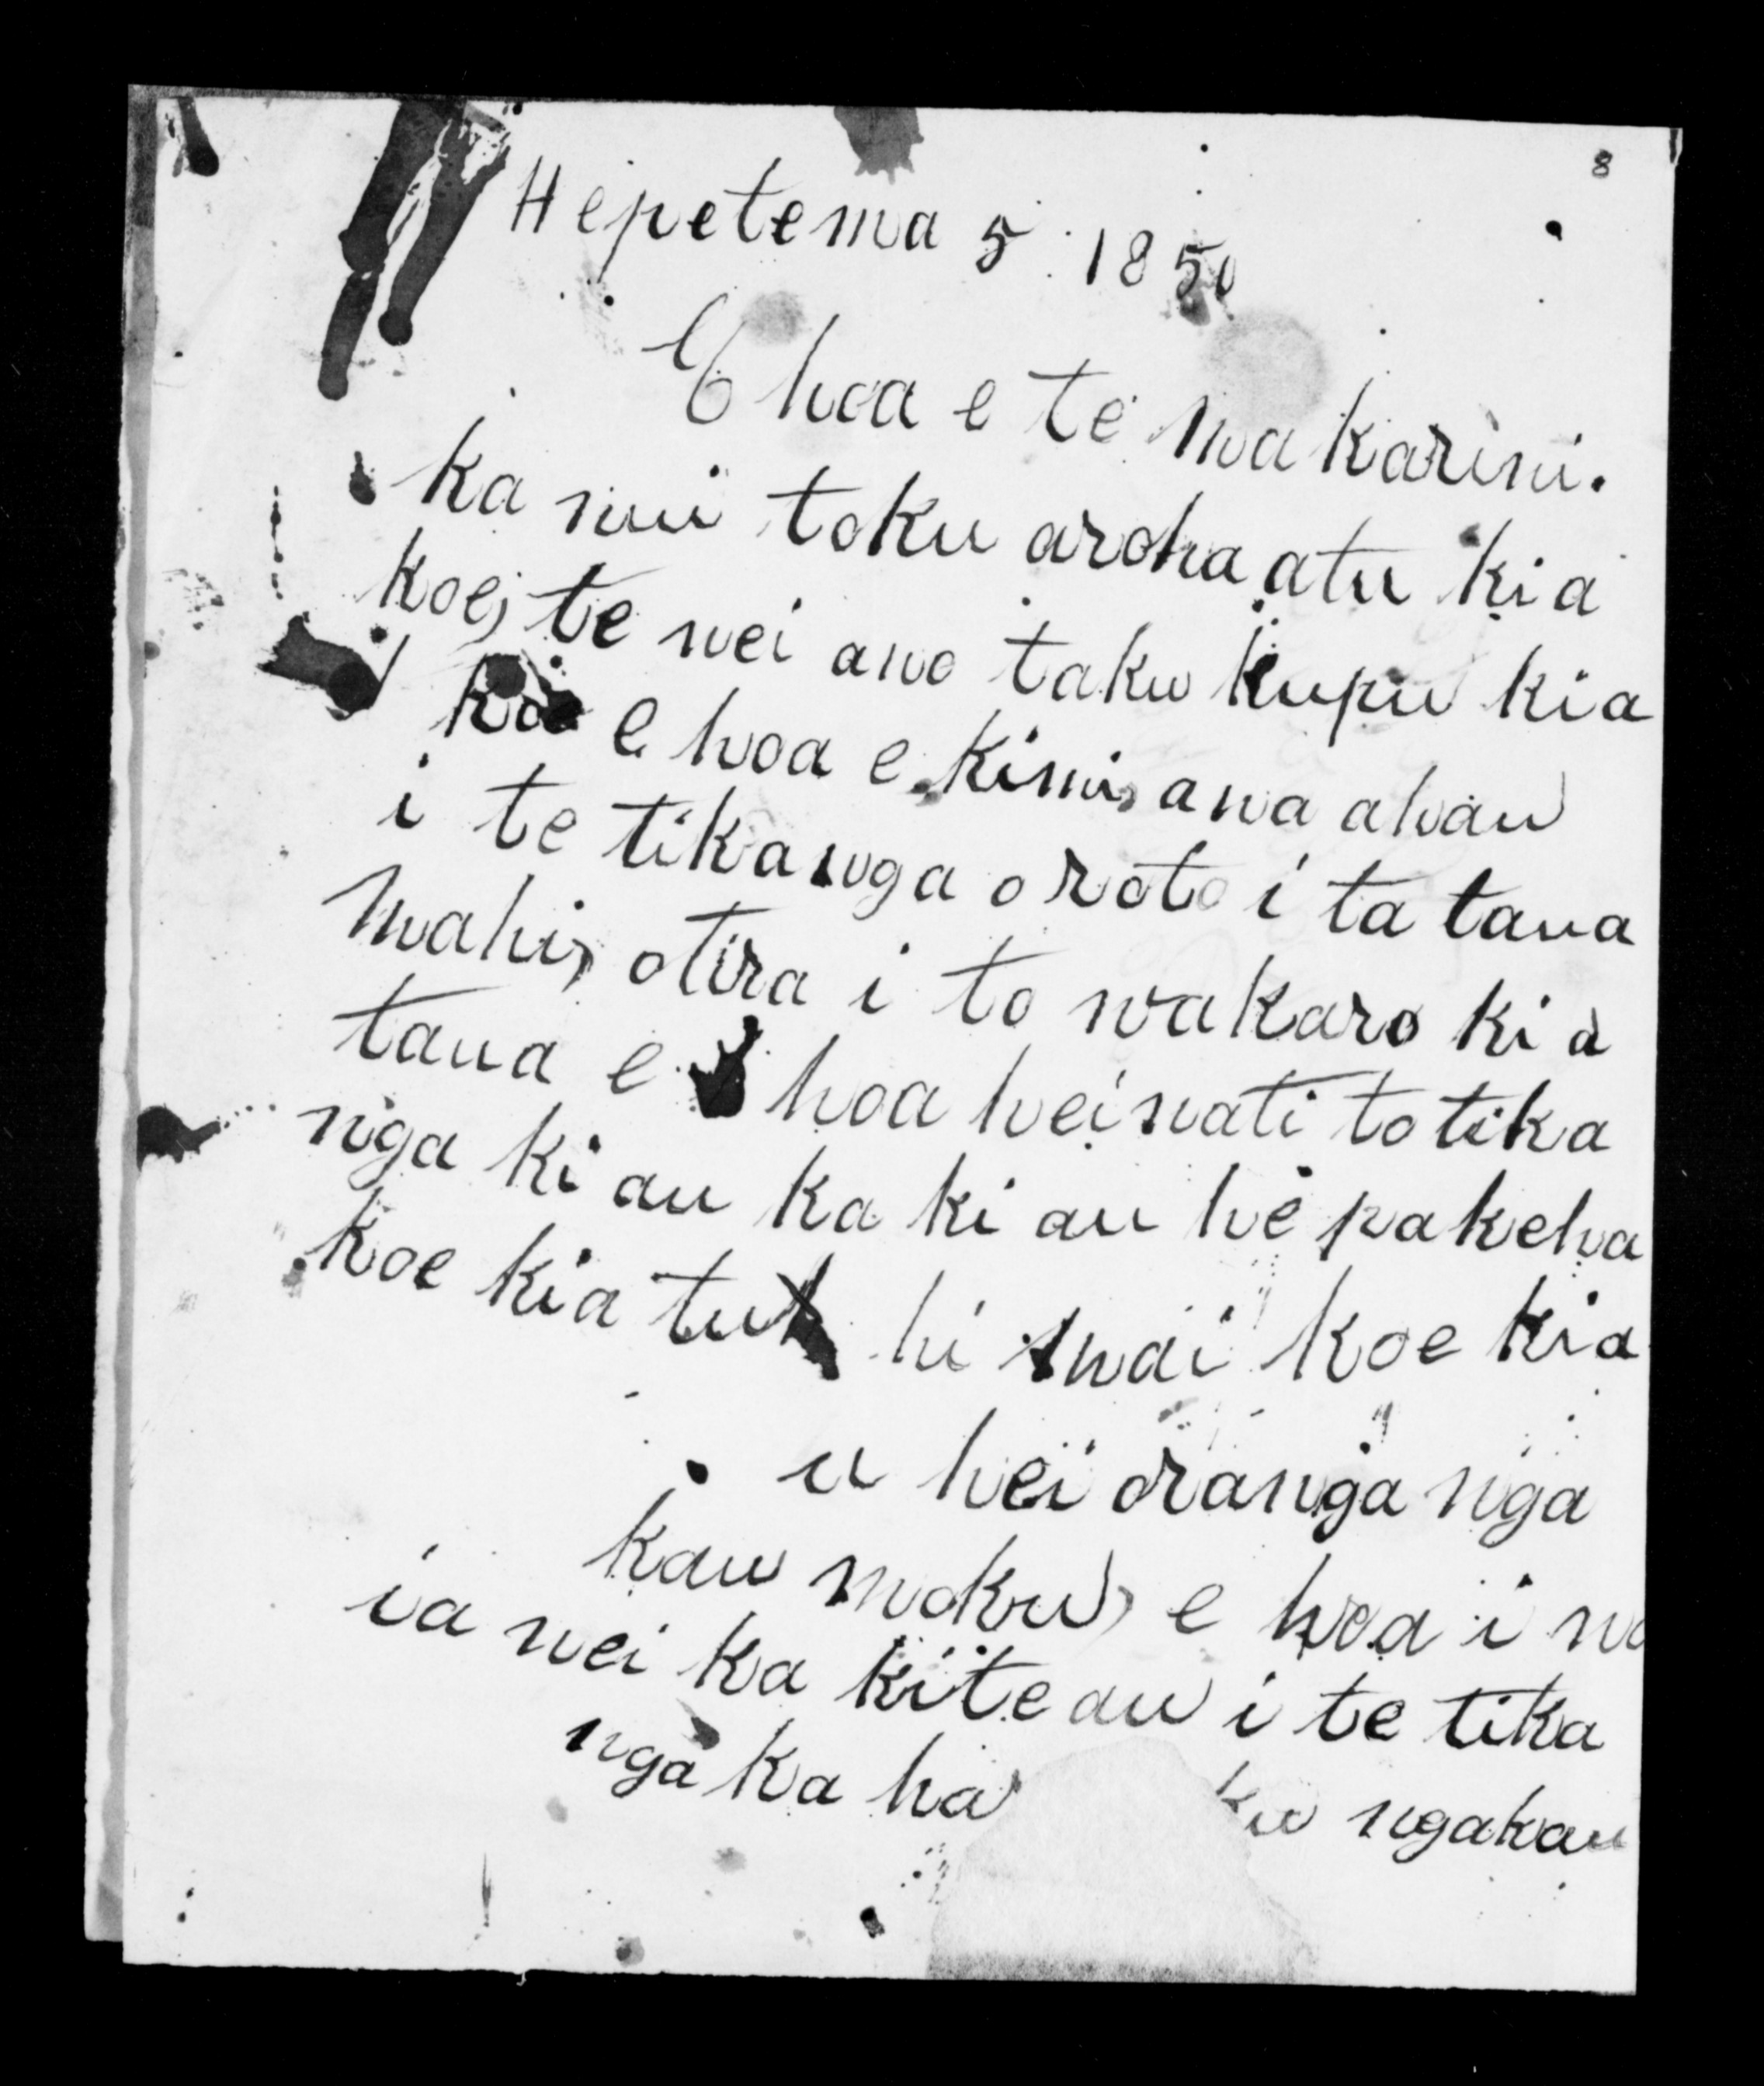 8
Hepetema 5 1850
E hoa e te makarini.
ka nui toku aroha atu kia
koe, te nei ano taku kupu kia
koe e hoa e kimi, ana ahau
i te tikanga o roto i ta taua
mahi, otira i to wakaro kia
taua e hoa heinati to tika
nga ki au ka ki au he pakeha
koe kia tu hi mai koe kia
u hei oranga nga
kau moku, e hoa i na
ia nei ka kite au i te tika
nga ka ha ku ngakau